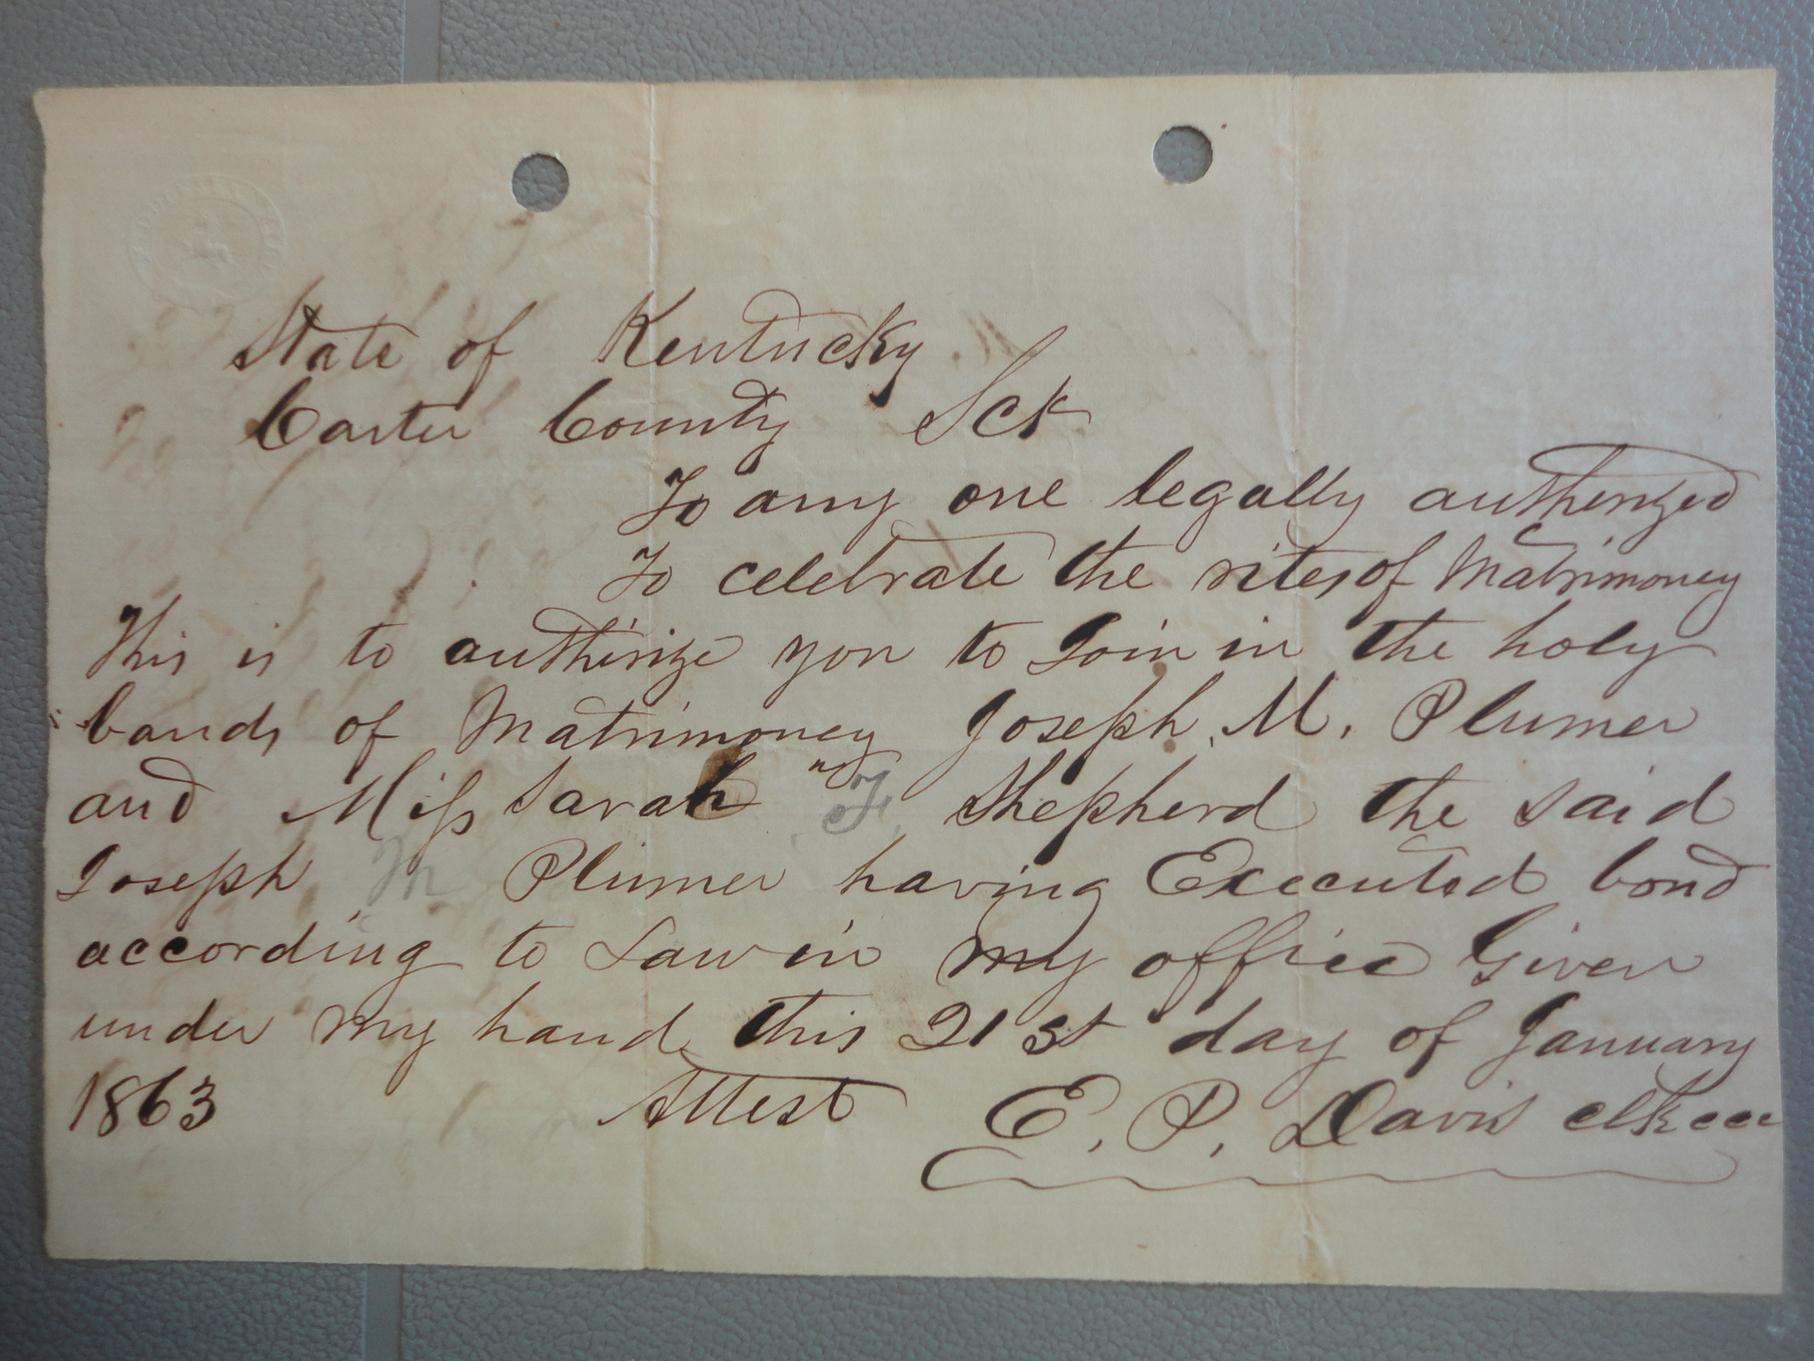 State of Kentucky
Carter County Sct
To any one legally authorized
To celebrate the rites of Matrimoney
This is to authorize you to Join in the holy
bands of Matrimoney Joseph. M. Plumer
and Miss Sarah F. Shepherd the said
Joseph M Plumer having Executed bond
according to Law in my office Given
under my hand this 21st day of January
1863 Attest E. P. Davis clk ccc